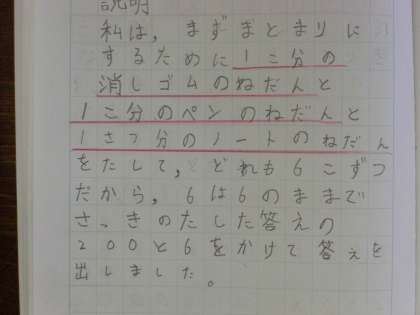 説明
私は，まずまとまりに
するために1こ分の
消しゴムのねだんと
1こ分のペンのねだんと
1さつ分のノートのねだん
をたして，どれも6こずつ
だから，6は6のままで
さっきのたした答えの
200と6をかけて答えを
出しました。